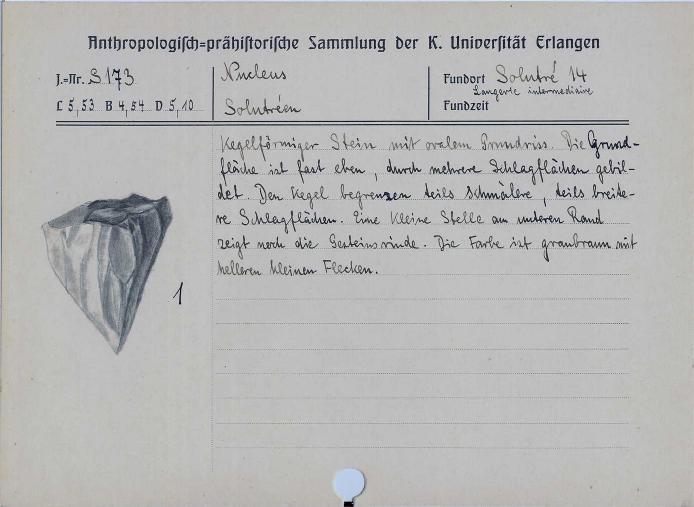 Anthropologisch=prähistorische Sammlung der K. Universität Erlangen
J.=Nr. S173
L 5,53 B 4,54 D 5,10
Nucleus
Solutréen
Fundort Solutré 14
Laugerie intermediaire
Fundzeit
Kegelförmiger Stein mit ovalem Grundriss. Die Grund-
fläche ist fast eben, durch mehrere Schlagflächen gebil-
det. Den Kegel begrenzen teils schmälere, teils breite-
re Schlagflächen. Eine kleine Stelle am unteren Rand
zeigt noch die Gesteinsrinde. Die Farbe ist graubraun mit
helleren kleinen Flecken.
1